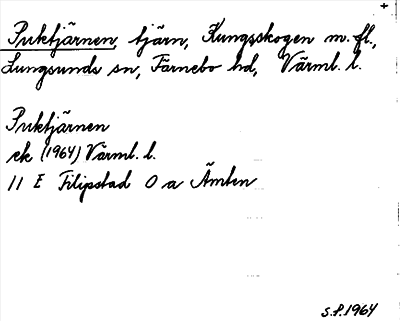 Puktjärnen, tjärn, Kungsskogen m. fl.,
Lungsunds sn, Färnebo hd, Värml. l.
Puktjärnen
ek (1964) Värml. l.
11 E Filipstad 0 a Ämten
S.P. 1964